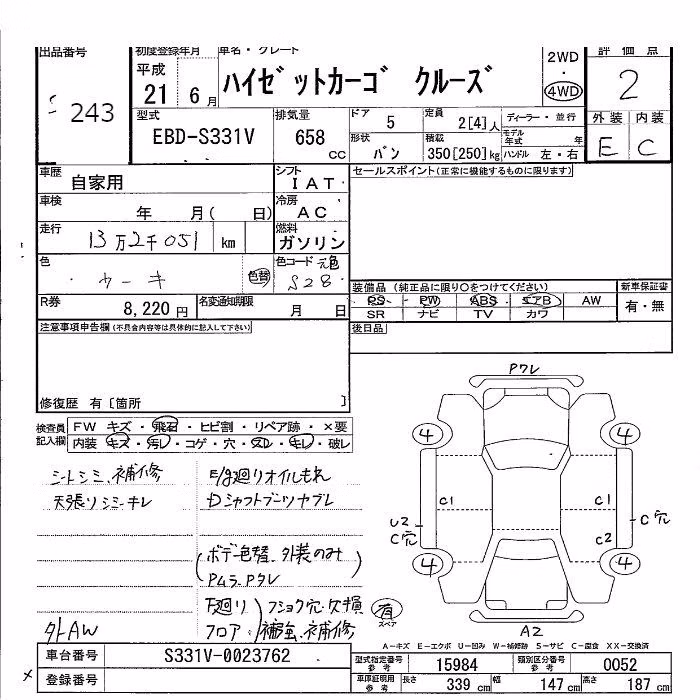 出品番号 初度登録年月 車名・グレード 2WD 評価点
平成
21 6月 ハイゼットカーゴ クルーズ ・ 4WD 2
243
型式 排気量 ドア 5 定員 2[4]人 ディーラー・並行 外装 内装
EBD-S331V 658 CC 形状 バン 積載 350[250]kg モデル年式 年 E C
ハンドル 左・右
車歴 自家用 シフト IAT セールスポイント(正常に機能するものに限ります)
車検 年 月( 日) 冷房 AC
走行 13万2千051 km 燃料 ガソリン
色 カーキ 色替 色コード 元色 S28
装備品 (純正品に限り○をつけてください) 新車保証書
R券 8,220円 名変通知期限 月 日 PS PW ABS エアB AW 有・無
SR ナビ TV カワ
注意事項申告欄(不具合内容等は具体的に記入して下さい) 後日品
修復歴 有〔箇所 〕
検査員記入欄 FW キズ・飛石・ヒビ割・リペア跡・×要
内装 キズ・汚レ・コゲ・穴・スレ・キレ・破レ
シートシミ、補修 E/g廻りオイルもれ
天張りシミ・キレ Dシャフトブーツヤブレ
ボデー色替、外装のみ
Pムラ、Pタレ
下廻り フショク穴・欠損
外AW フロア 補強、補修
Pワレ
4 4
C1 C1
U2 C穴 C2 C穴
4 4
有 スペア A2
A-キズ E-エクボ U-凹み W-補修跡 S-サビ C-腐食 XX-交換済
車台番号 S331V-0023762 型式指定番号 参考 15984 類別区分番号 参考 0052
登録番号 車庫証明用 参考 長さ 339 cm 幅 147 cm 高さ 187 cm